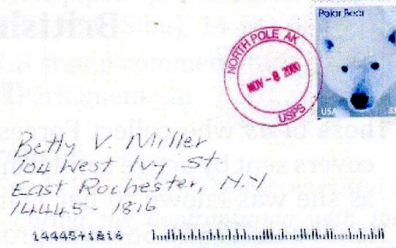 Polar Bear
NORTH POLE AK
NOV - 8 2000
USPS
USA
Betty V. Miller
104 West Ivy St.
East Rochester, N.Y
14445-1816
14445+1816